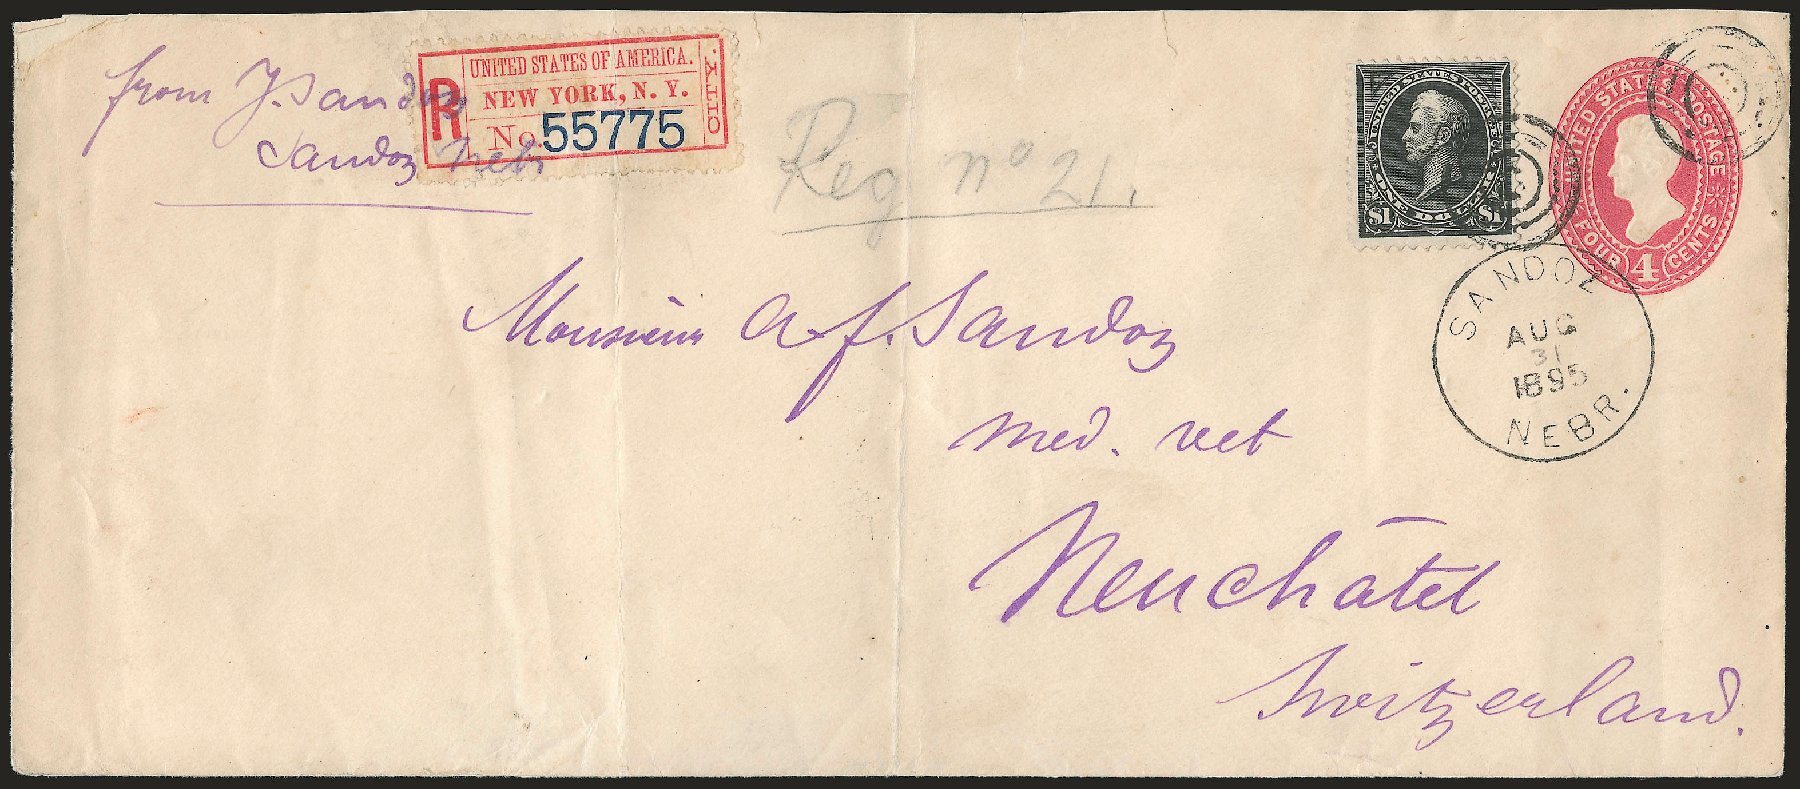 from J. Sandoz
Sandoz Nebr
R
UNITED STATES OF AMERICA.
NEW YORK, N. Y.
No 55775
CITY.
Reg no 21.
UNITED STATES POSTAGE
$1 ONE DOLLAR $1
UNITED STATES POSTAGE
FOUR 4 CENTS
SANDOZ
AUG
31
1895
NEBR.
Monsieur A. f. Sandoz
med. vet
Neuchâtel
Switzerland.